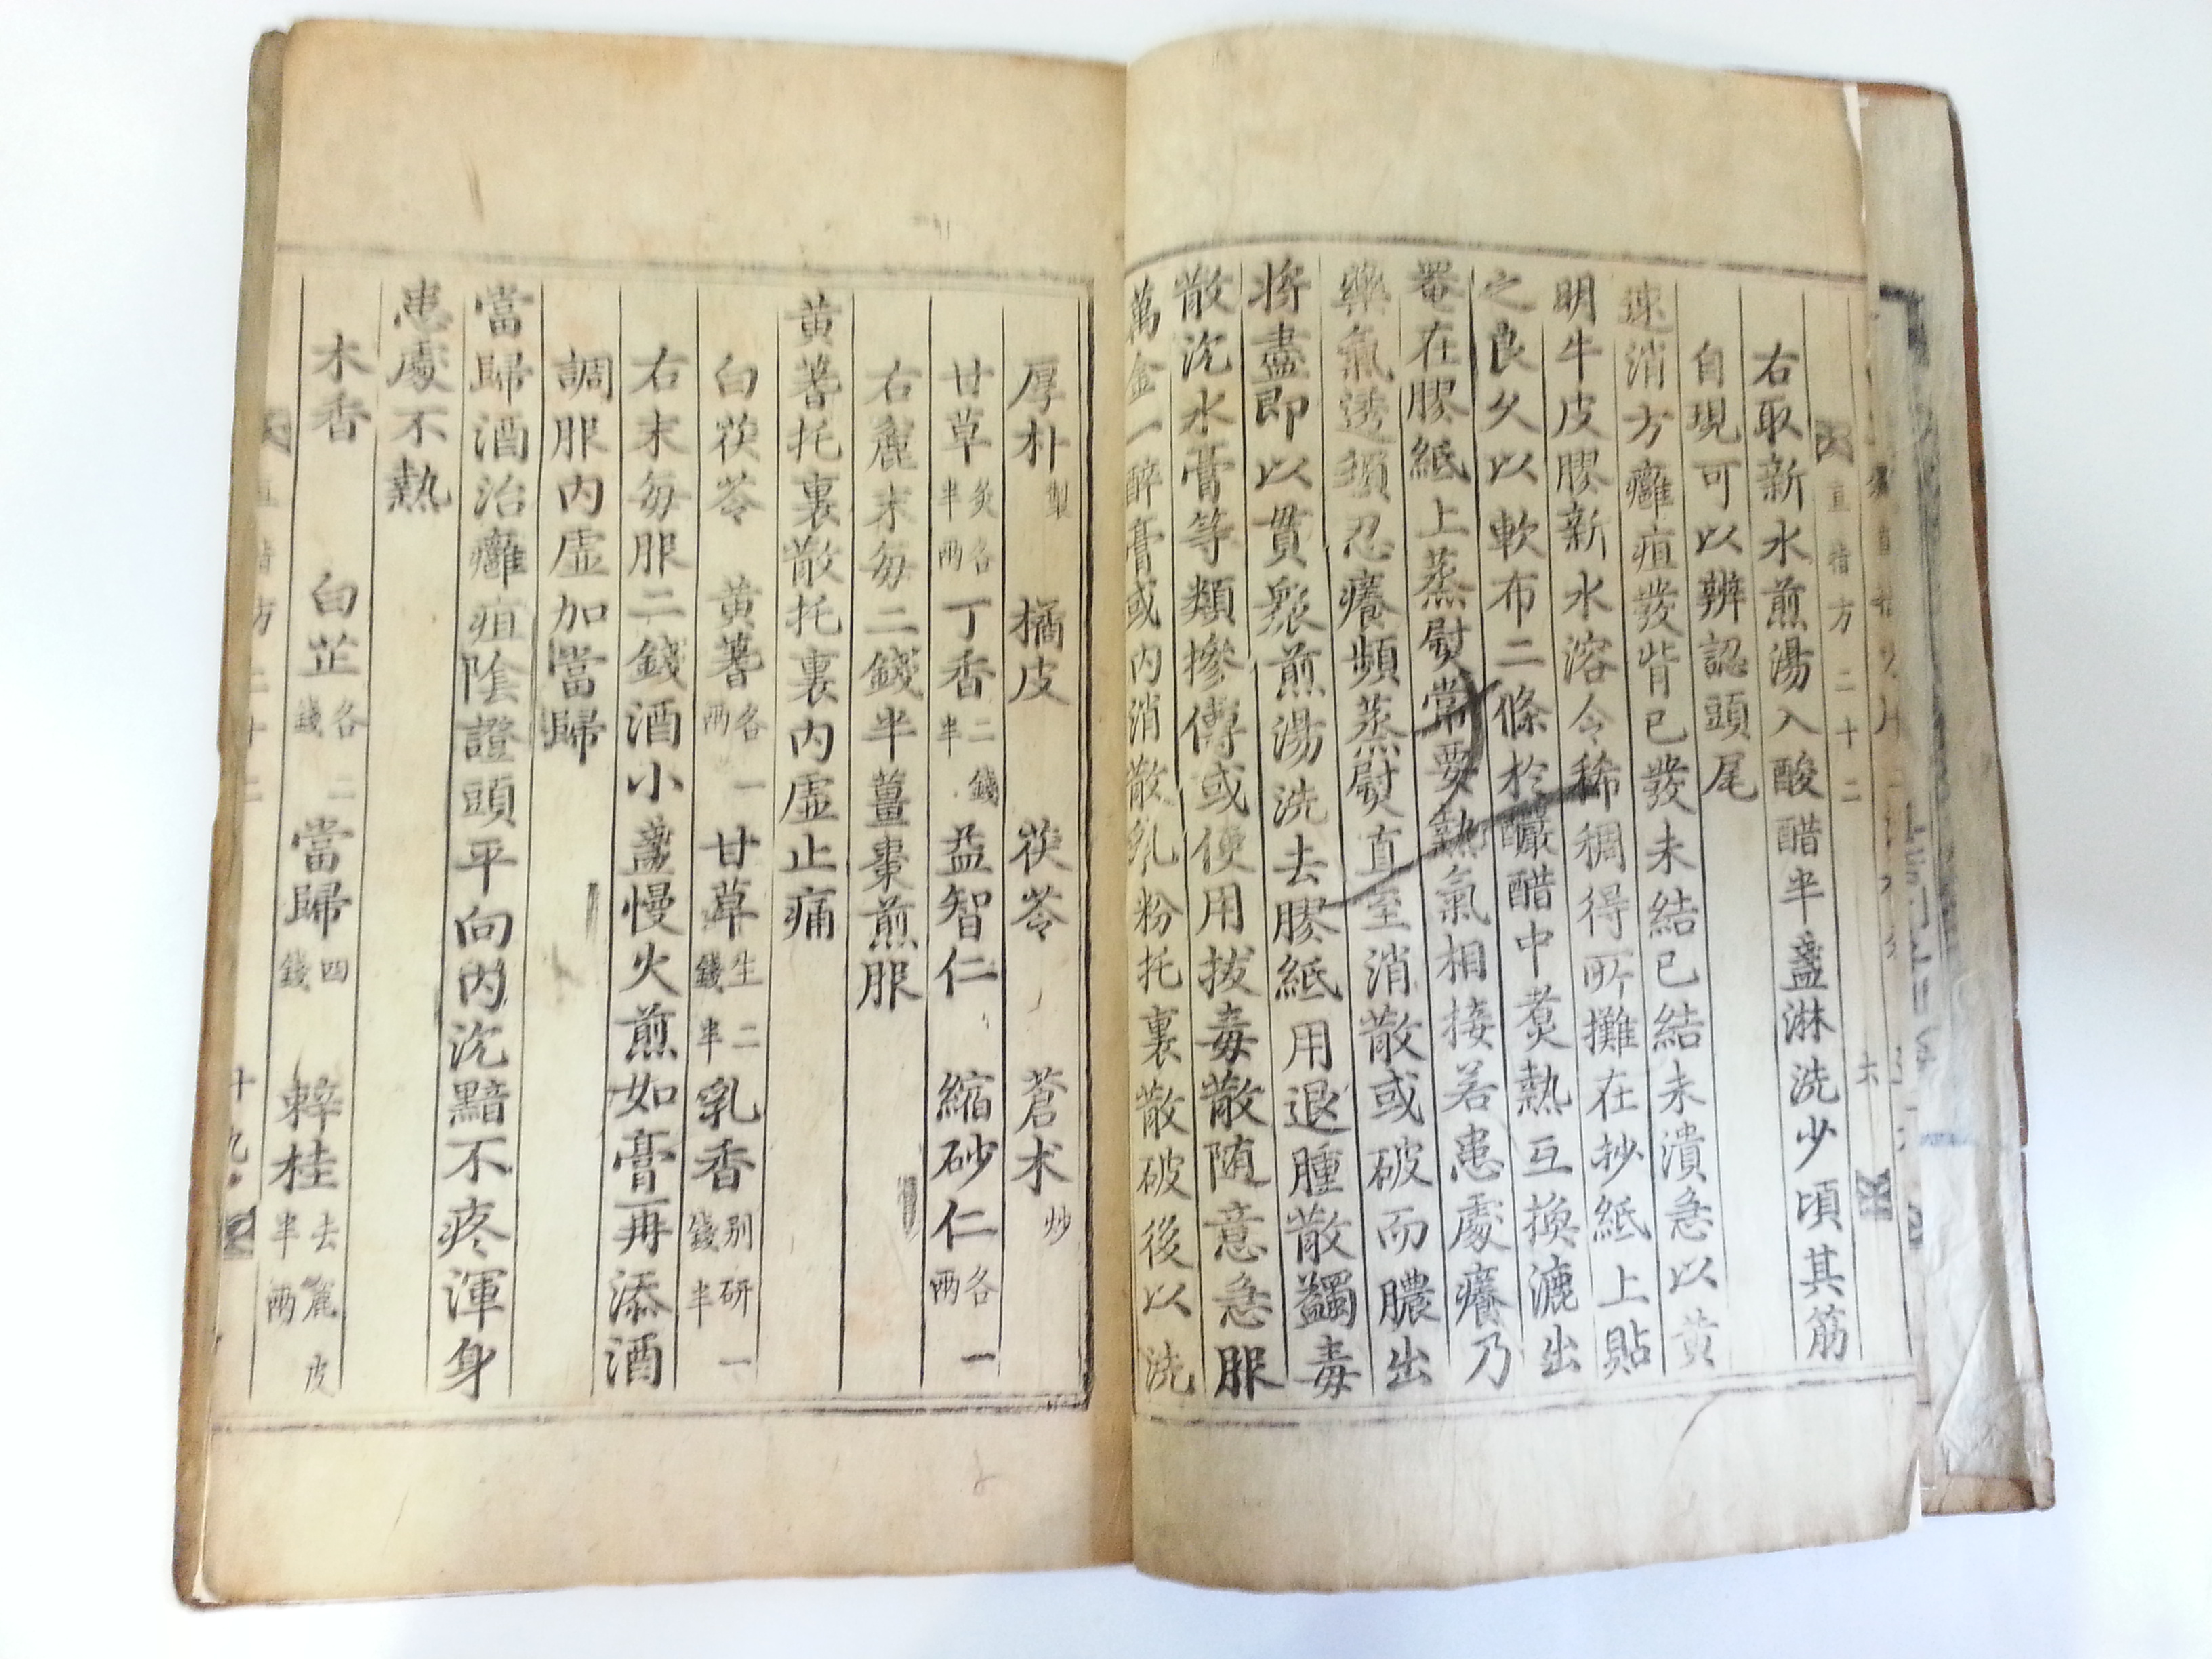 直指方二十二
右取新水煎湯入酸醋半盞淋洗少頃其筋
自現可以辨認頭尾
速消方癰疽發背已發未結已結未潰急以黃
明牛皮膠新水溶令稀稠得所攤在抄紙上貼
之良久以軟布二條於釅醋中煑熱互換漉出
罨在膠紙上蒸熨常要熱氣相接若患處癢乃
藥氣透須忍癢頻蒸熨直至消散或破而膿出
將盡即以貫衆煎湯洗去膠紙用退腫散蠲毒
散沈水膏等類摻傅或便用拔毒散隨意急服
萬金一醉膏或內消散乳粉托裏散破後以洗
厚朴製 橘皮 茯苓 蒼朮炒
甘草炙各半兩 丁香二錢半 益智仁 縮砂仁各一
右麄末每二錢半薑棗煎服
黃蓍托裏散托裏內虛止痛
白茯苓 黃蓍各一兩 甘草生二錢半 乳香別研一錢半
右末每服二錢酒小盞慢火煎如膏再添酒
調服內虛加當歸
當歸酒治癰疽陰證頭平向內沈黯不疼渾身
患處不熱
木香 白芷各二錢 當歸四錢 辣桂去麄皮半兩
直指方二十二 十九